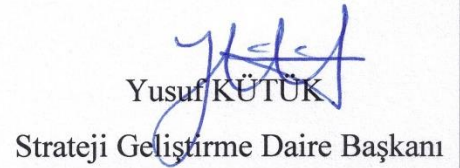 Yusuf KÜTÜK
Strateji Geliştirme Daire Başkanı